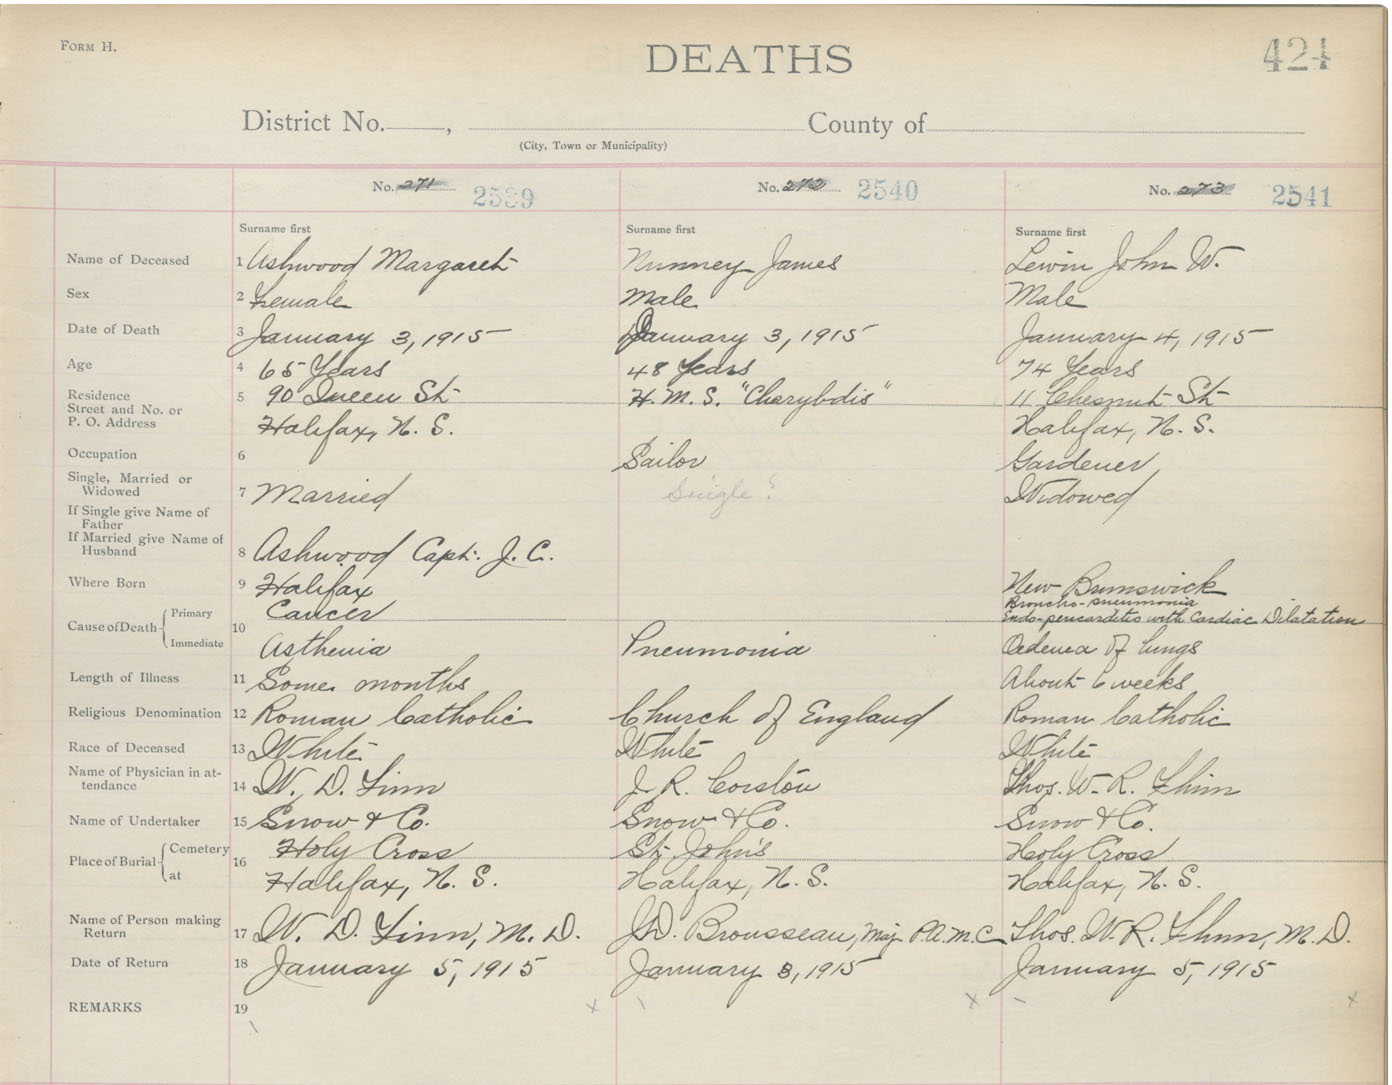 FORM H.
DEATHS
424
District No. , County of
(City, Town or Municipality)
No. 271 2539 No. 272 2540 No. 273 2541
Surname first Surname first Surname first
Name of Deceased 1 Ashwood Margaret Nunney James Lewin John W.
Sex 2 Female Male Male
Date of Death 3 January 3, 1915 January 3, 1915 January 4, 1915
Age 4 65 Years 48 Years 74 Years
Residence 5 90 Queen St. H.M.S. "Charybdis" 11 Chesnut St.
Street and No. or
P. O. Address Halifax, N. S. Halifax, N. S.
Occupation 6 Sailor Gardener
Single, Married or
Widowed 7 Married Single? Widowed
If Single give Name of
Father
If Married give Name of
Husband 8 Ashwood Capt. J. C.
Where Born 9 Halifax New Brunswick
Cause of Death Primary Cancer Broncho-pneumonia
Endo-pericarditis with Cardiac Dilatation
10 Immediate Asthenia Pneumonia Oedema of lungs
Length of Illness 11 Some months About 6 weeks
Religious Denomination 12 Roman Catholic Church of England Roman Catholic
Race of Deceased 13 White White White
Name of Physician in at-
tendance 14 W. D. Finn J. R. Corston Thos. W. R. Flinn
Name of Undertaker 15 Snow & Co. Snow & Co. Snow & Co.
Place of Burial Cemetery 16 Holy Cross St. John's Holy Cross
at Halifax, N. S. Halifax, N. S. Halifax, N. S.
Name of Person making
Return 17 W. D. Finn, M. D. J.D. Brousseau, Maj. P.A.M.C Thos. W. R. Flinn, M. D.
Date of Return 18 January 5, 1915 January 3, 1915 January 5, 1915
REMARKS 19 x x x